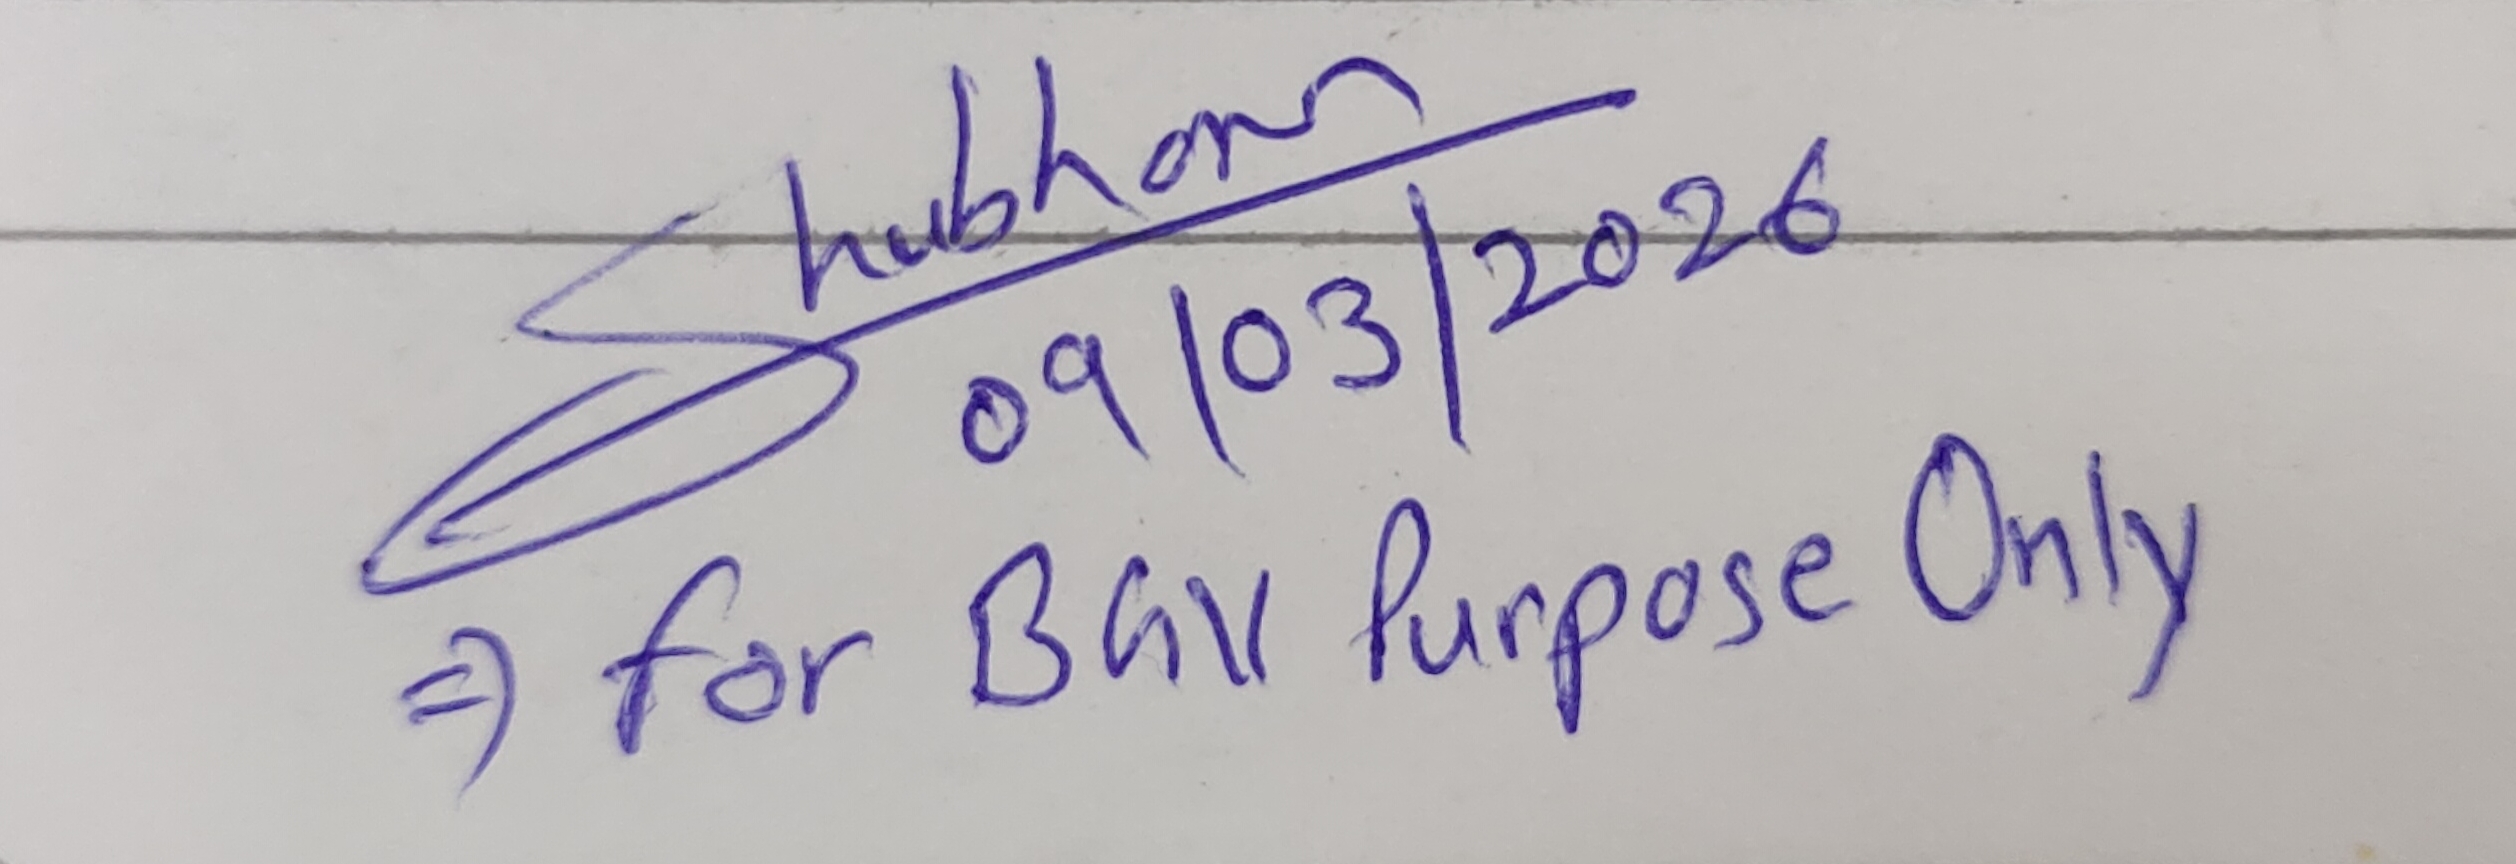 Shubham
09/03/2026
=> for BGV Purpose Only